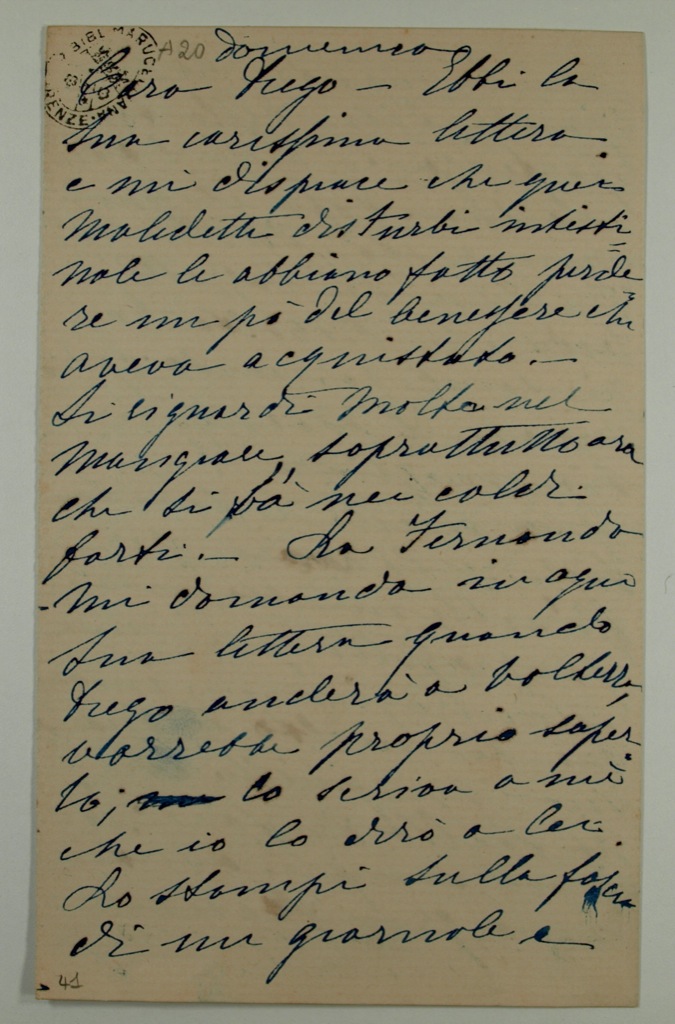 A20 domenica
Caro Diego – Ebbi la
sua carissima lettera
e mi dispiace che quei
maledetti disturbi intesti=
nale le abbiano fatto perde=
re un pò del benessere che
aveva acquistato. –
Si riguardi molto nel
mangiare, soprattutto ora
che si và nei caldi
forti. – La Fernanda
mi domanda in ogni
sua lettera quando
Diego anderà a Volterra,
vorrebbe proprio saper
lo; lo scriva a mè
che io lo dirò a lei
Lo stampi sulla fascia
di un giornale e
41